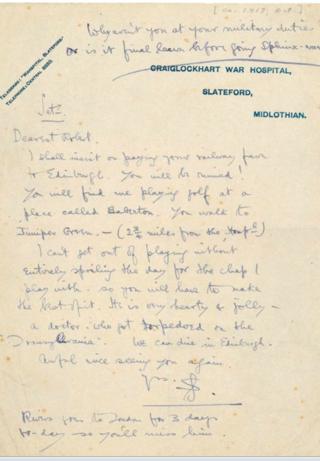 [ca. 1917,
Why aren't you at your military duties
or is it final leave before going Sphinx-
TELEGRAMS:- HOSPITAL, SLATEFORD.
TELEPHONE:- CENTRAL
CRAIGLOCKHART WAR HOSPITAL,
SLATEFORD,
MIDLOTHIAN.
Dearest
I shall insist on paying your railway fare
to Edinburgh. You will be ruined!
You will find me playing golf at a
place called Baberton. You walk to
Juniper Green. — (2¾ miles from the Hospl)
I can't get out of playing without
entirely spoiling the day for the chap I
play with. So you will have to make
the best of it. He is very hearty & jolly —
a doctor who got torpedoed on the
We can dine in Edinburgh.
Awful nice seeing you again
Yrs. SS
Rivers goes to London for 3 days
to-day so you'll miss him.